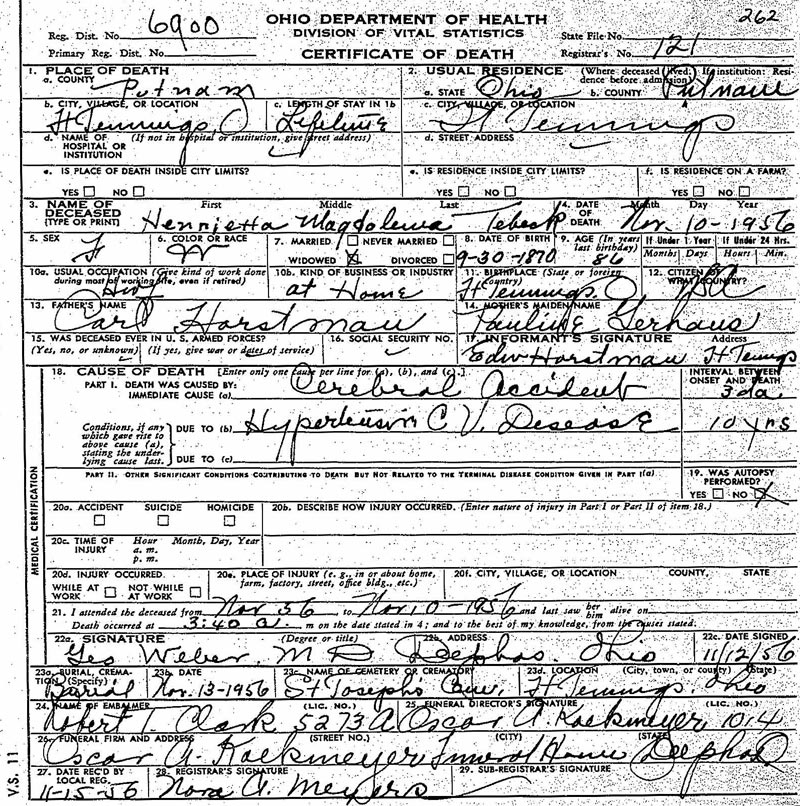 OHIO DEPARTMENT OF HEALTH
DIVISION OF VITAL STATISTICS
CERTIFICATE OF DEATH
262
Reg. Dist. No. 6900
Primary Reg. Dist. No.
State File No.
Registrar's No. 121
1. PLACE OF DEATH
a. COUNTY Putnam
2. USUAL RESIDENCE (Where deceased lived. If institution: Residence before admission)
a. STATE Ohio b. COUNTY Putnam
b. CITY, VILLAGE, OR LOCATION Ft Jennings O
c. LENGTH OF STAY IN 1b Lifetime
c. CITY, VILLAGE, OR LOCATION Ft Jennings
d. NAME OF HOSPITAL OR INSTITUTION (If not in hospital or institution, give street address)
d. STREET ADDRESS
e. IS PLACE OF DEATH INSIDE CITY LIMITS?
YES NO
e. IS RESIDENCE INSIDE CITY LIMITS?
YES NO
f. IS RESIDENCE ON A FARM?
YES NO
3. NAME OF DECEASED (TYPE OR PRINT)
First Middle Last
Henrietta Magdalena
4. DATE OF DEATH Month Day Year
Nov. 10-1956
5. SEX F
6. COLOR OR RACE W
7. MARRIED NEVER MARRIED
WIDOWED X DIVORCED
8. DATE OF BIRTH 9-30-1870
9. AGE (In years last birthday) 86
If Under 1 Year Months Days
If Under 24 Hrs. Hours Min.
10a. USUAL OCCUPATION (Give kind of work done during most of working life, even if retired)
10b. KIND OF BUSINESS OR INDUSTRY at Home
11. BIRTHPLACE (State or foreign country) Ft Jennings O
12. CITIZEN OF WHAT COUNTRY?
13. FATHER'S NAME Carl Horstman
14. MOTHER'S MAIDEN NAME Pauline Gerhaus
15. WAS DECEASED EVER IN U. S. ARMED FORCES?
(Yes, no, or unknown) (If yes, give war or dates of service)
16. SOCIAL SECURITY NO.
17. INFORMANT'S SIGNATURE Address
Edw Horstman Ft Jennings
MEDICAL CERTIFICATION
18. CAUSE OF DEATH [Enter only one cause per line for (a), (b), and (c).]
INTERVAL BETWEEN ONSET AND DEATH
PART I. DEATH WAS CAUSED BY:
IMMEDIATE CAUSE (a) Cerebral Accident 3 da.
Conditions, if any which gave rise to above cause (a), stating the underlying cause last.
DUE TO (b) Hypertension C V. Disease 10 yrs
DUE TO (c)
PART II. OTHER SIGNIFICANT CONDITIONS CONTRIBUTING TO DEATH BUT NOT RELATED TO THE TERMINAL DISEASE CONDITION GIVEN IN PART I(a)
19. WAS AUTOPSY PERFORMED?
YES NO X
20a. ACCIDENT SUICIDE HOMICIDE
20b. DESCRIBE HOW INJURY OCCURRED. (Enter nature of injury in Part I or Part II of item 18.)
20c. TIME OF INJURY Hour Month, Day, Year
a. m.
p. m.
20d. INJURY OCCURRED.
WHILE AT WORK NOT WHILE AT WORK
20e. PLACE OF INJURY (e. g., in or about home, farm, factory, street, office bldg., etc.)
20f. CITY, VILLAGE, OR LOCATION COUNTY, STATE
21. I attended the deceased from Nov 56 to Nov 10-1956 and last saw her him alive on
Death occurred at 3:40 a. m on the date stated in 4; and to the best of my knowledge, from the causes stated.
22a. SIGNATURE (Degree or title)
Geo Weber, M D
22b. ADDRESS Delphos, Ohio
22c. DATE SIGNED 11/12/56
23a. BURIAL, CREMATION, (Specify) Burial
23b. DATE Nov. 13-1956
23c. NAME OF CEMETERY OR CREMATORY St Josephs Cem.
23d. LOCATION (City, town, or county) (State)
Ft Jennings, Ohio
24. NAME OF EMBALMER (LIC. NO.)
Robert T. Clark 5273A
25. FUNERAL DIRECTOR'S SIGNATURE (LIC. NO.)
Oscar A. Kockmeyer, 1014
26. FUNERAL FIRM AND ADDRESS (STREET NO.) (CITY) (STATE)
Oscar A. Kockmeyer Funeral Home Delphos O
27. DATE REC'D BY LOCAL REG. 11-15-56
28. REGISTRAR'S SIGNATURE Nora A. Meyers
29. SUB-REGISTRAR'S SIGNATURE
V.S. 11